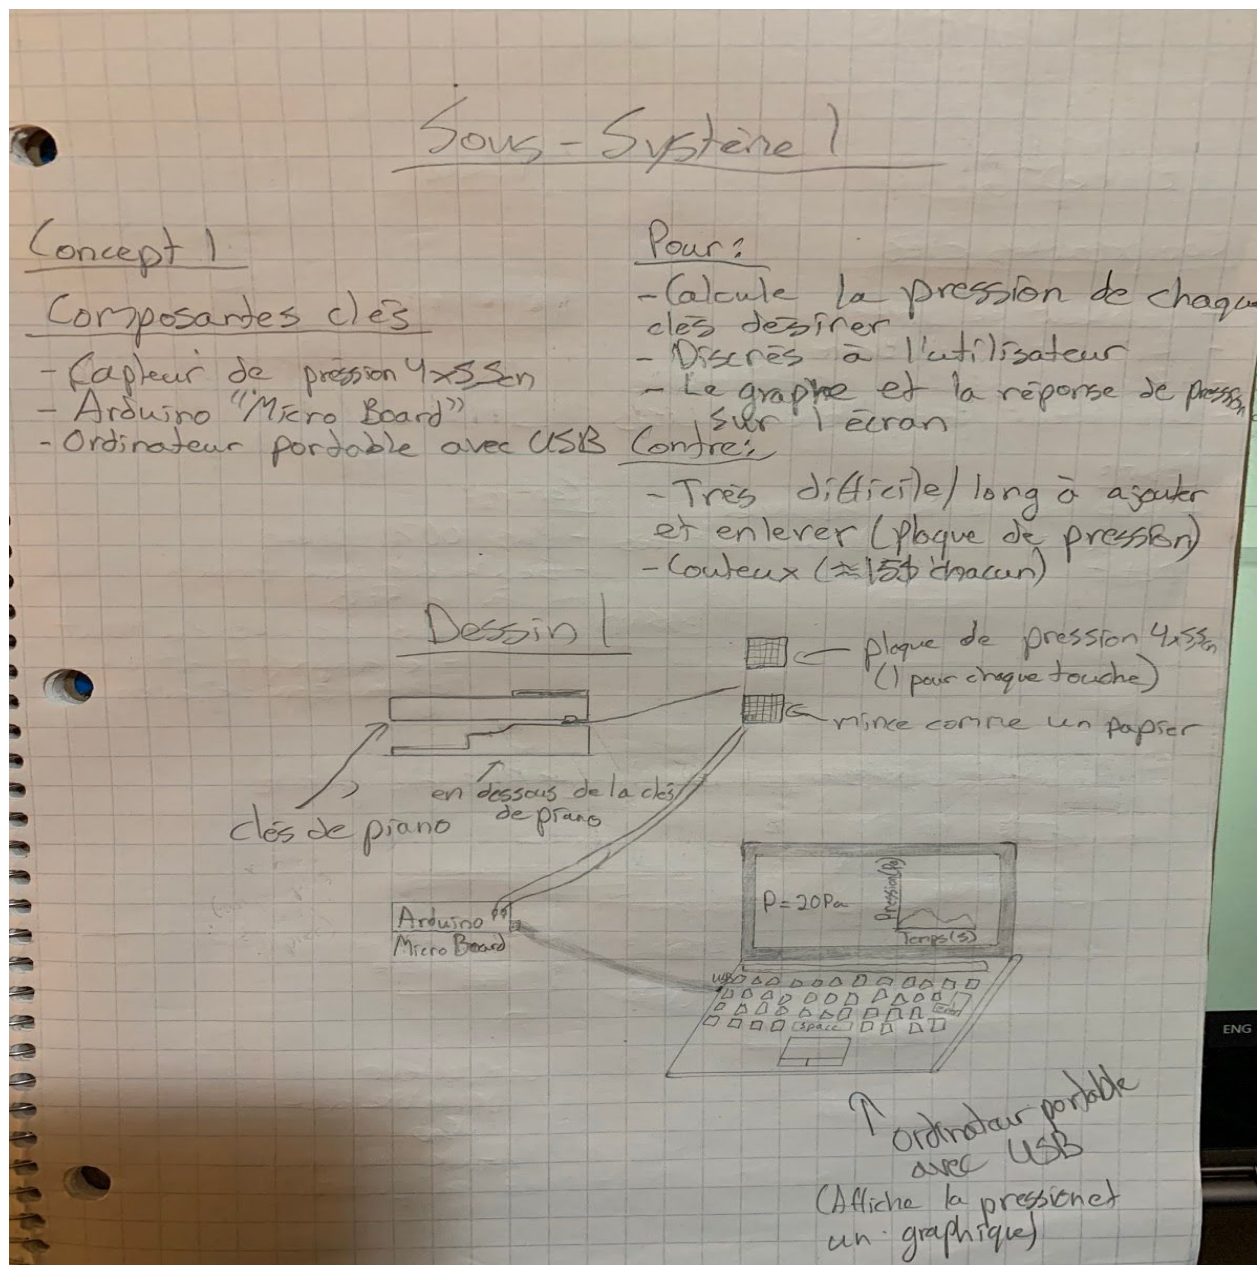 Sous-Système 1
Concept 1
Composantes clés
- Capteur de pression 4x55cm
- Arduino "Micro Board"
- Ordinateur portable avec USB
Pour:
- Calcule la pression de chaque
clés désirer
- Discrès à l'utilisateur
- Le graphe et la réponse de pression
sur l'écran
Contre:
- Très difficile/long à ajouter
et enlever (plaque de pression)
- Couteux (≈15$ chacun)
Dessin 1
plaque de pression 4x55cm
(1 pour chaque touche)
mince comme un papier
en dessous de la clés
de piano
clés de piano
Arduino
Micro Board
P=20Pa
Pression(Pa)
Temps(s)
USB
Enter
Space
ordinateur portable
avec USB
(Affiche la pression et
un graphique)
ENG